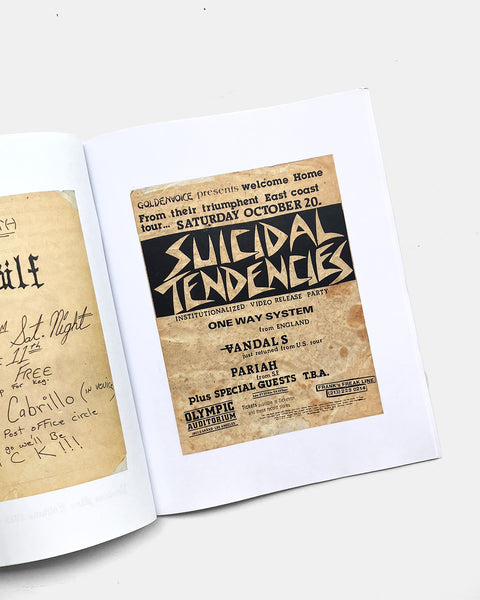 TH
ülf
Sat. Night
11th
FREE
for keg.
Cabrillo (IN VENICE
Post office circle
go we'll Be
CK!!!
GOLDENVOICE presents Welcome Home
From their triumphent East coast
tour... SATURDAY OCTOBER 20.
SUICIDAL
TENDENCIES
INSTITUTIONALIZED VIDEO RELEASE PARTY
ONE WAY SYSTEM
from ENGLAND
VANDALS
just returned from U.S. tour
PARIAH
from S.F.
Plus SPECIAL GUESTS T.B.A.
OLYMPIC
AUDITORIUM
FRANK'S FREAK LINE